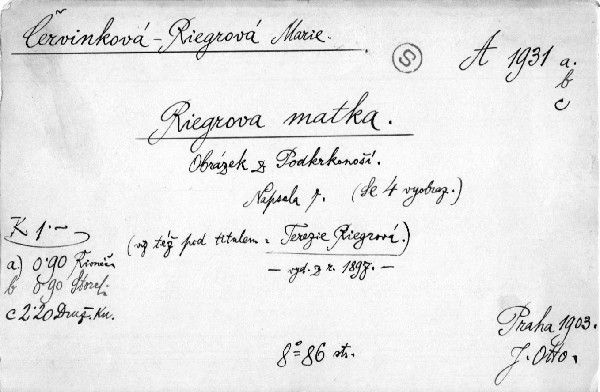 Červinková-Riegrová Marie.
Ⓢ
A 1931 a.
b
c
Riegrova matka.
Obrázek z Podkrkonoší.
Napsala †. (Se 4 vyobraz.)
K 1·—
(viz též pod titulem: Terezie Riegrová.)
— vyd. z r. 1897. —
a) 0·90
b 0·90
c 2·20 Kn.
8° 86 st.
Praha 1903.
J. Otto.